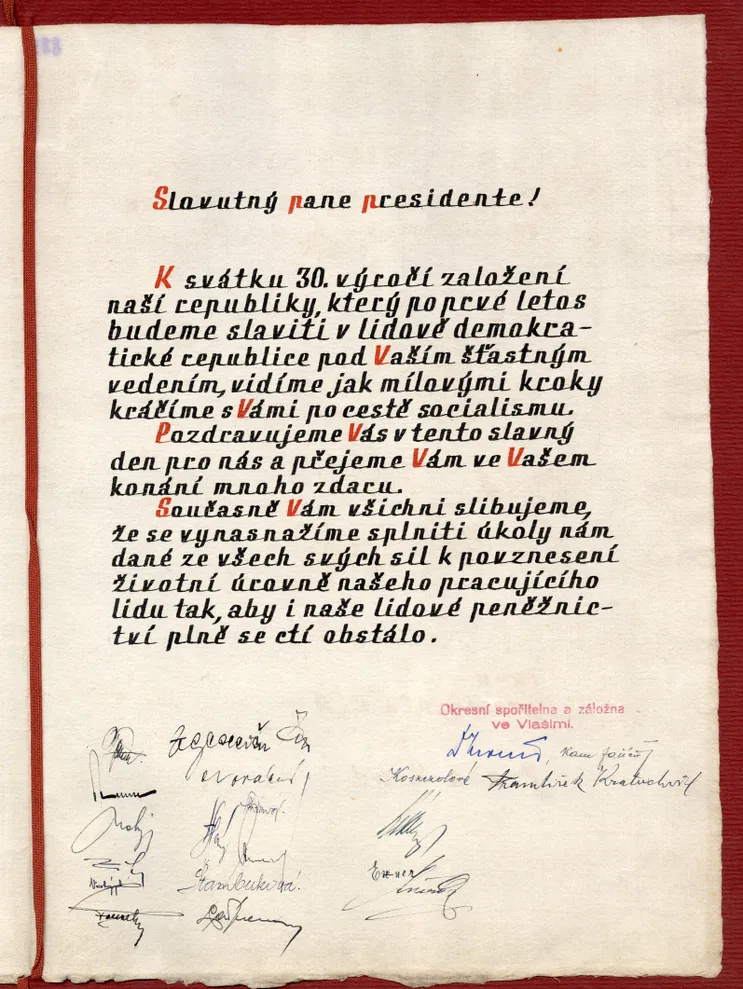 Slovutný pane presidente!
K svátku 30. výročí založení
naší republiky, který poprvé letos
budeme slaviti v lidově demokra-
tické republice pod Vaším šťastným
vedením, vidíme jak mílovými kroky
kráčíme s Vámi po cestě socialismu.
Pozdravujeme Vás v tento slavný
den pro nás a přejeme Vám ve Vašem
konání mnoho zdaru.
Současně Vám všichni slibujeme,
že se vynasnažíme splniti úkoly nám
dané ze všech svých sil k povznesení
životní úrovně našeho pracujícího
lidu tak, aby i naše lidové peněžnic-
tví plně se ctí obstálo.
Okresní spořitelna a záložna
ve Vlašimi.
František Kratochvíl